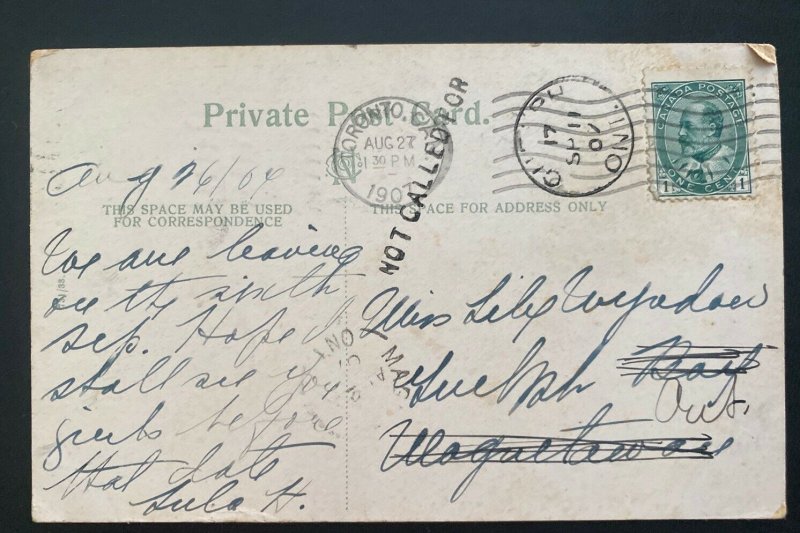 Private Post Card.
TORONTO. CAN
AUG 27
1 30 P.M.
1907
NOT CALLED FOR
GUELPH ONT
17
SP 11
07
CANADA POSTAGE
1 ONE CENT 1
Aug 26/07
THIS SPACE MAY BE USED
FOR CORRESPONDENCE
THIS SPACE FOR ADDRESS ONLY
We are leaving
on the sixth
Sep. Hope I
shall see you
girls before
that date
Lula H.
Miss Lily
Guelph
Ont.
Magnetawan
MAG
ONT